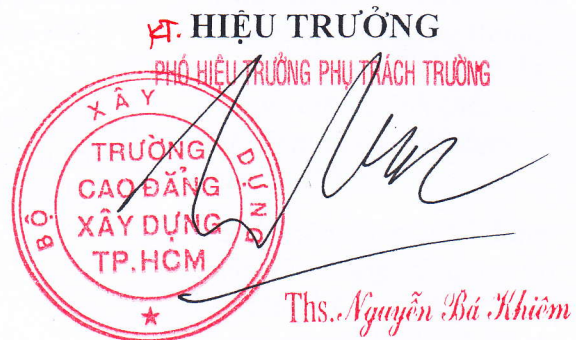 KT. HIỆU TRƯỞNG
PHÓ HIỆU TRƯỞNG PHỤ TRÁCH TRƯỜNG
BỘ XÂY DỰNG
TRƯỜNG
CAO ĐẲNG
XÂY DỰNG
TP.HCM
Ths. Nguyễn Bá Khiêm